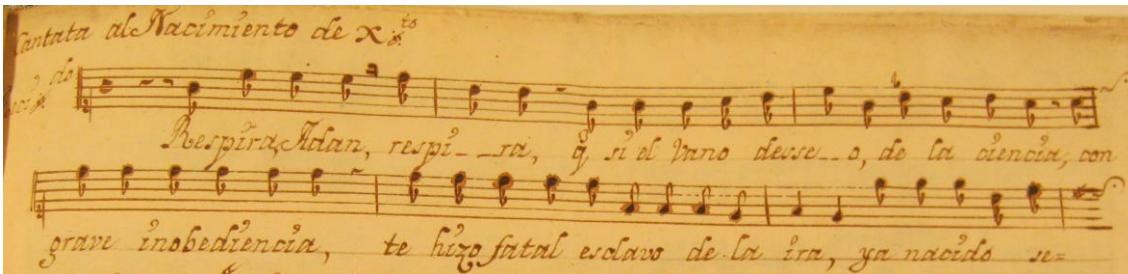 Cantata al Nacimiento de Xpto
Reciᵈᵒ
Respira, Adan, respi--ra, q̃ si el vano desse--o, de la ciencia, con
grave inobediencia, te hizo fatal esclavo de la ira, ya nacido se=